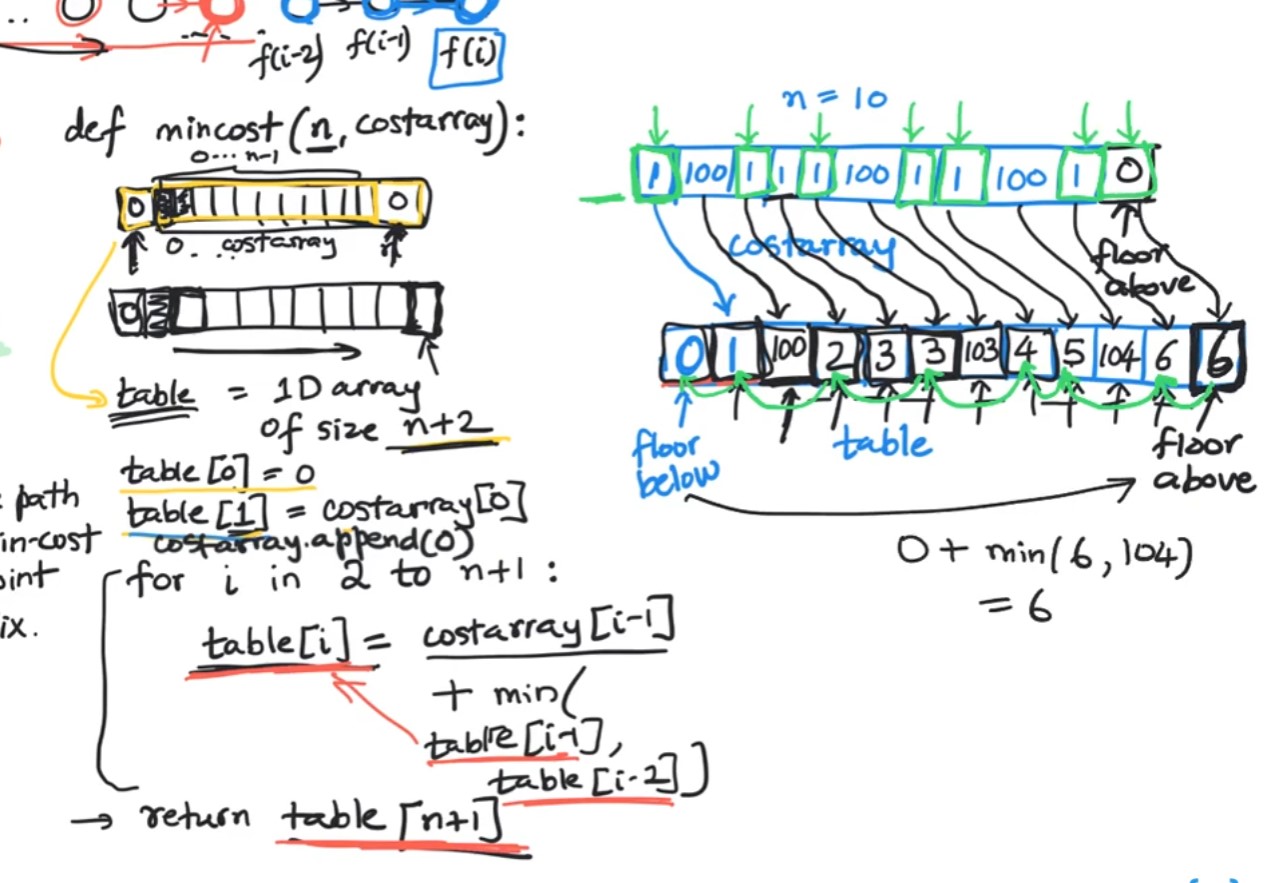 ..
f(i-2) f(i-1) f(i)
def mincost(n, costarray):
0...n-1
0 0
0...costarray n
0
table = 1D array
of size n+2
table[0] = 0
path
table[1] = costarray[0]
in-cost
costarray.append(0)
oint
for i in 2 to n+1 :
ix.
table[i] = costarray[i-1]
+ min(
table[i-1],
table[i-2])
→ return table[n+1]
n = 10
1 100 1 1 1 100 1 1 100 1 0
costarray
floor
above
0 1 100 2 3 3 103 4 5 104 6 6
floor
below
table
floor
above
0 + min(6, 104)
= 6